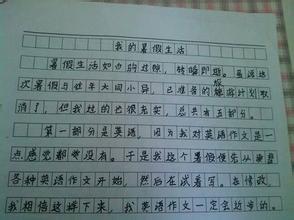 我的暑假生活
暑假生活如白驹过隙,转瞬即逝。虽说这
次暑假与往年大同小异,已准备的旅游计划取
消了,但我过的也很充实,总共有五部分。
第一部分是英语,因为我对英语作文是一
点感觉都没有。于是我这个暑假便先从背
各种英语作文开始,然后在试着写。在修改,
我相信这样下来,我英语作文一定会进步的。